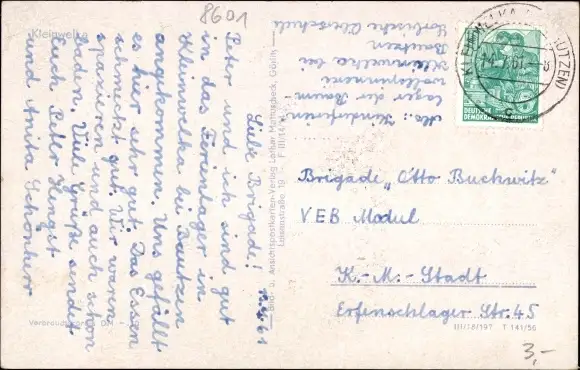 8601
Kleinwelka
Liebe Brigade!
Peter und ich sind gut
in das Ferienlager in
Kleinwelka bei Bautzen
angekommen. Uns gefällt
es hier sehr gut. Das Essen
schmeckt gut. Wir waren
spazieren und auch schon
baden. Viele Grüße sendet
Euch Peter Hengst
und Anita Schönherr
Verbraucherpreis DM
Bild- u. Ansichtspostkarten-Verlag Lothar Görlitz
Abs.: Kinderferien
lager der Baum
wollspinnerei
Kleinwelka bei
Bautzen
Sorbische Oberschule
DEUTSCHE
DEMOKRATISCHE REPUBLIK
Brigade „Otto Buchwitz"
VEB Modul
K.-M.-Stadt
Erfenschlager Str. 45
III/18/197 T 141/56
3,-